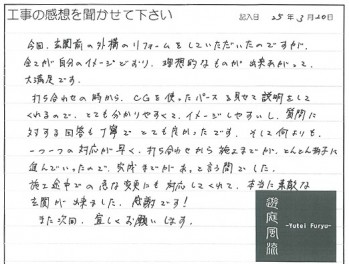 工事の感想を聞かせて下さい
記入日 25年3月20日
今回、玄関前の外構のリフォームをしていただいたのですが、
全てが自分のイメージどおり、理想的なものが出来あがって、
大満足です。
打ち合わせの時から、CGを使ったパースを見せて説明をして
くれるので、とても分かりやすくて、イメージしやすいし、質問に
対する回答も丁寧でとても良かったです。そして何よりも、
一つ一つの対応が早く、打ち合わせから施工までが、とんとん拍子に
進んでいったので、完成までがあっと言う間でした。
施工途中での急な変更にも対応してくれて、本当に素敵な
玄関が出来ました。感謝です!
また次回、宜しくお願いします。
遊庭風流
-Yutei Furyu-